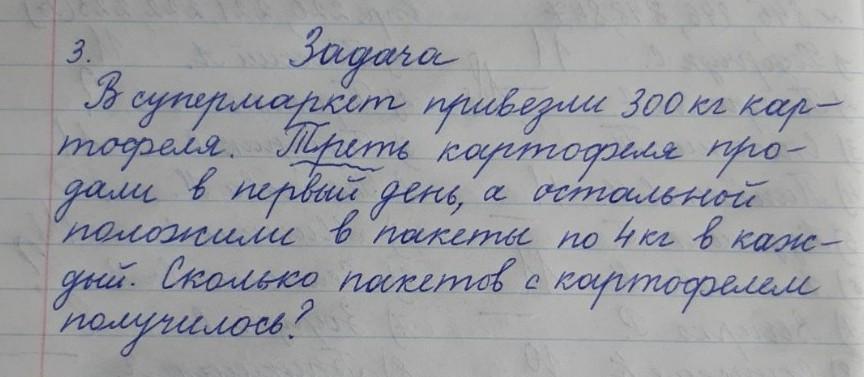 3. Задача
В супермаркет привезли 300 кг кар-
тофеля. Треть картофеля про-
дали в первый день, а остальной
положили в пакеты по 4 кг в каж-
дый. Сколько пакетов с картофелем
получилось?